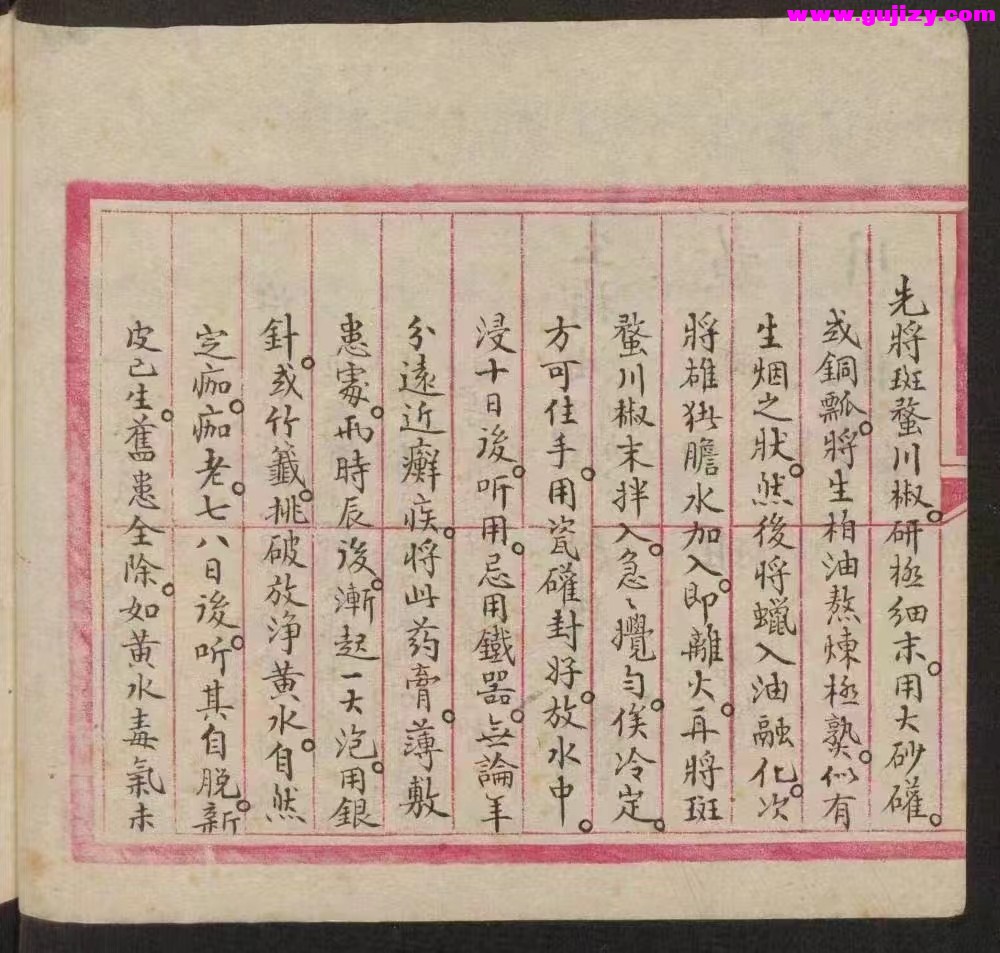 www.gujizy.com
先將斑蝥川椒。研極细末。用大砂礶。
或銅瓢。將生柏油熬煉極熟。似有
生烟之狀。然後將蠟入油融化。次
將雄猪膽水加入。即離火。再將斑
蝥川椒末拌入。急〻攪匀。俟冷定。
方可住手。用瓷礶封好。放水中。
浸十日後。听用。忌用鐵器。無論年
分遠近癬疾。將此药膏。薄敷
患處。兩時辰後。漸起一大泡。用銀
針。或竹籤。挑破放净黄水。自然
定痂。痂老。七八日後。听其自脱。新
皮已生。舊患全除。如黄水毒氣未